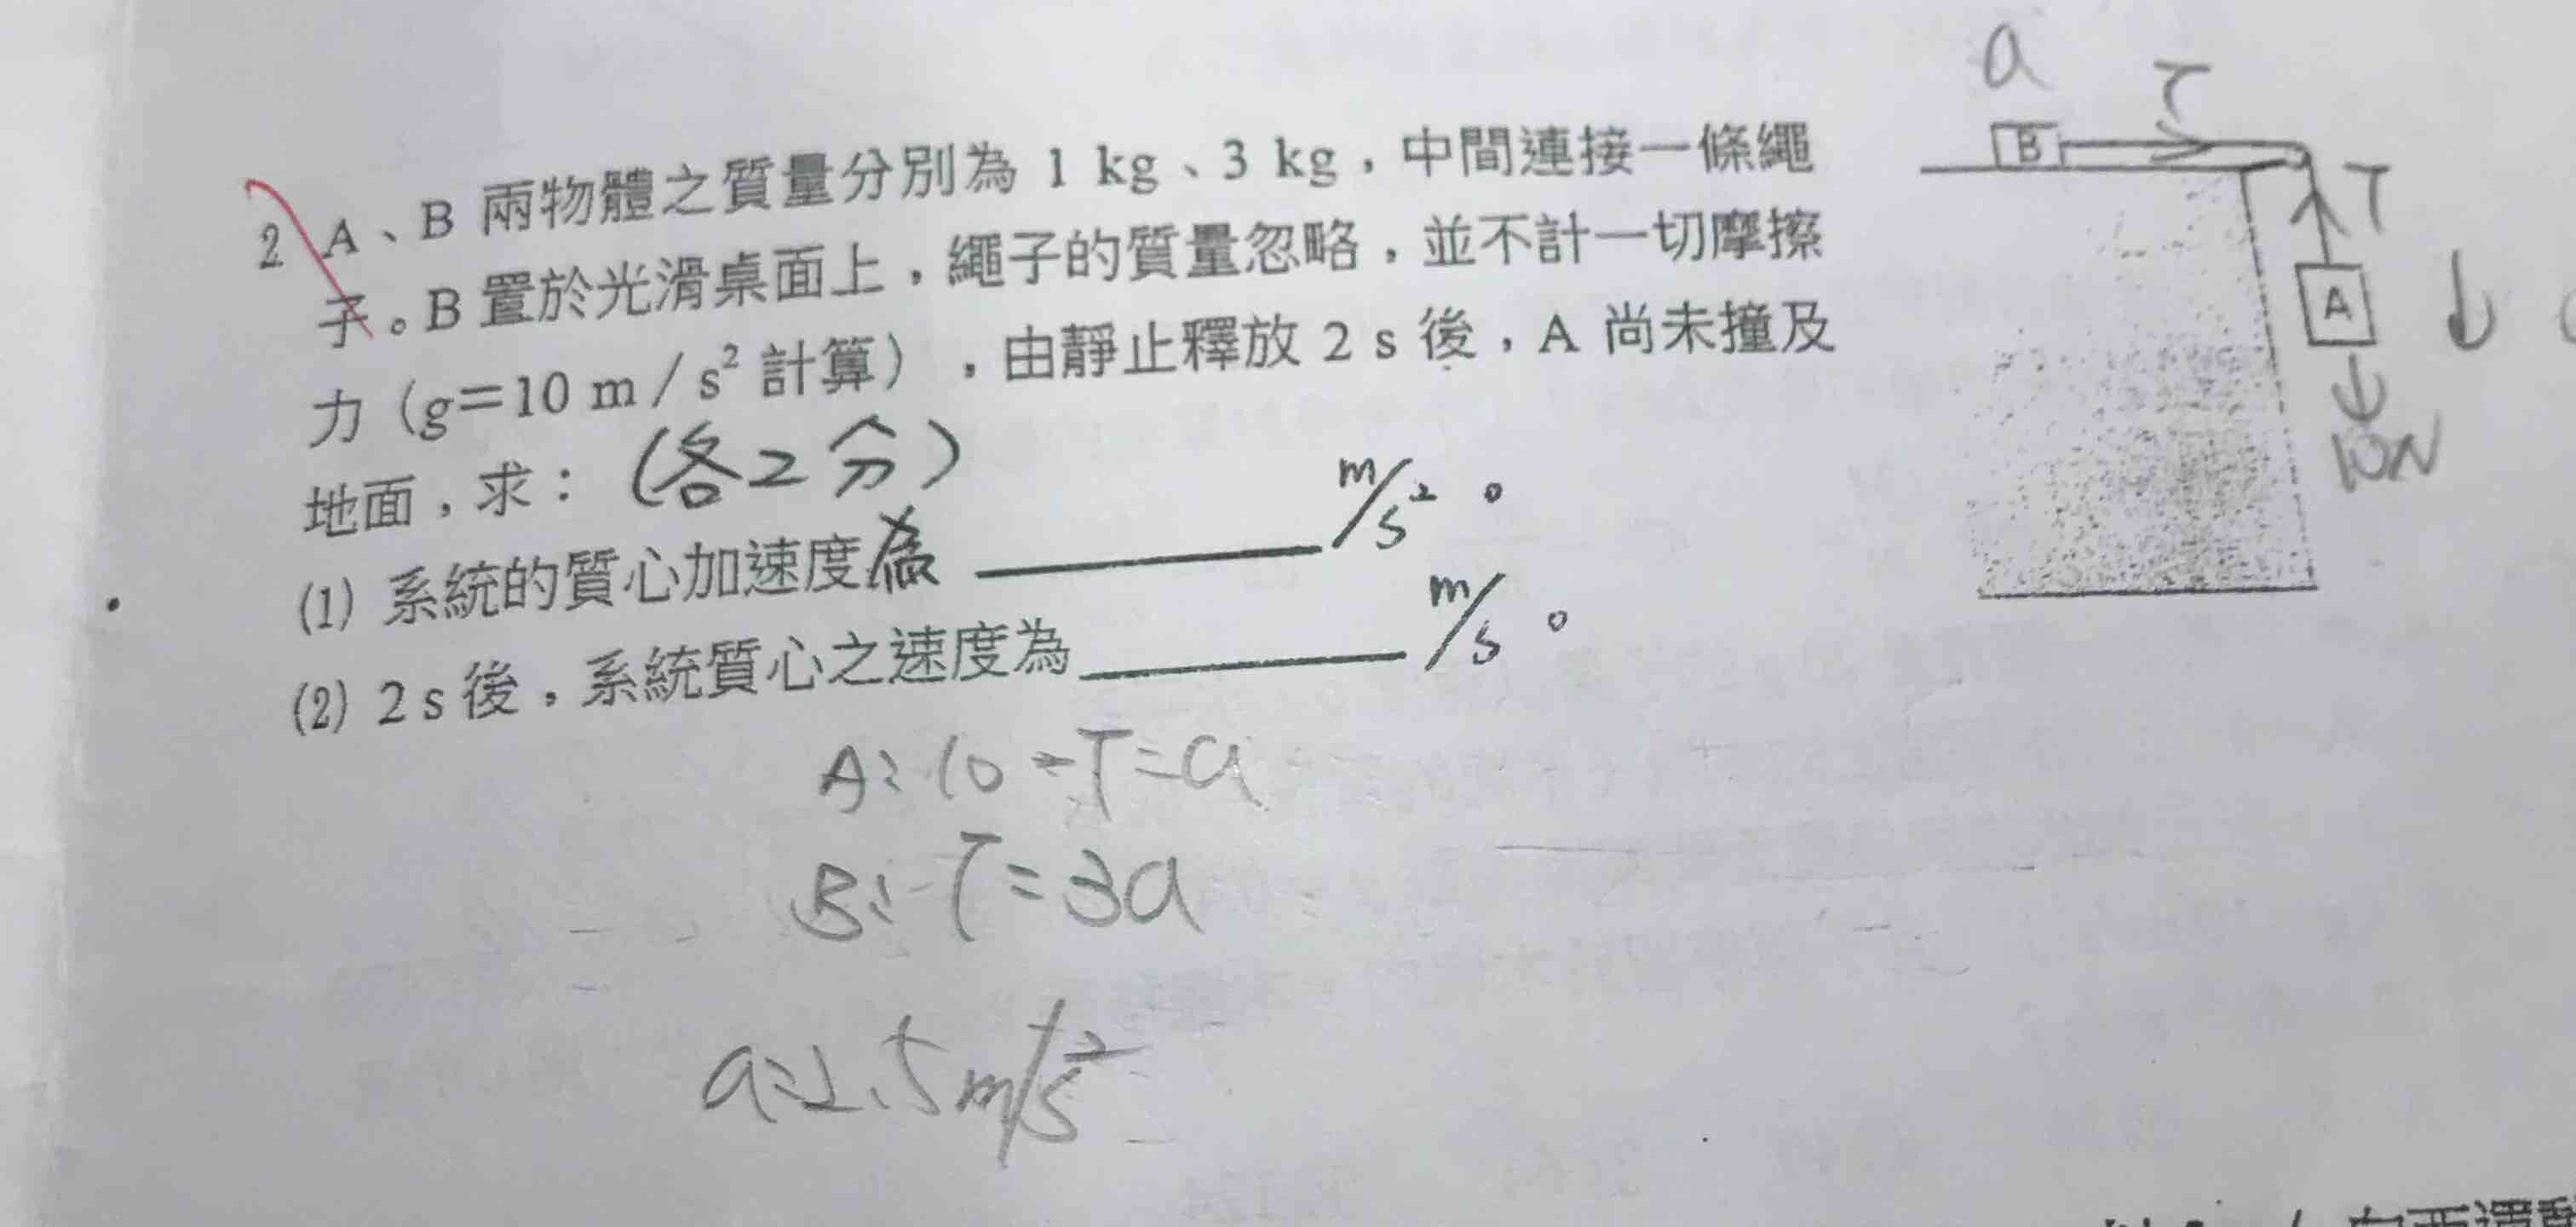 a
T
B
T
A
10N
2 A、B 兩物體之質量分別為 1 kg、3 kg，中間連接一條繩
子。B 置於光滑桌面上，繩子的質量忽略，並不計一切摩擦
力（g＝10 m / s² 計算），由靜止釋放 2 s 後，A 尚未撞及
地面，求：(各2分)
(1) 系統的質心加速度為 ________ m/s² 。
(2) 2 s 後，系統質心之速度為 ________ m/s 。
A: 10 - T = a
B: T = 3a
a=2.5 m/s²